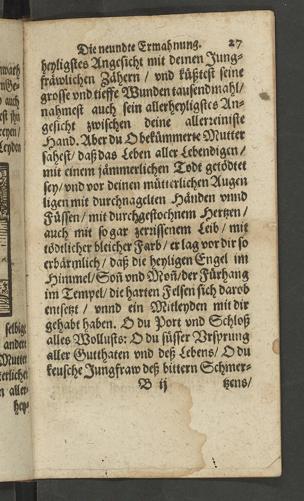 Die neundte Ermahnung. 27
heyligstes Angesicht mit deinen Jung-
fräwlichen Zähern / vnd küßtest seine
grosse vnd tieffe Wunden tausendmahl/
nahmest auch sein allerheyligstes An-
gesicht zwischen deine allerreiniste
Hand. Aber du O bekümmerte Mutter
sahest / daß das Leben aller Lebendigen /
mit einem jämmerlichen Todt getödtet
sey / vnd vor deinen mütterlichen Augen
ligen mit durchnagelten Händen vnnd
Füssen / mit durchgestochnem Hertzen /
auch mit so gar zerrissenem Leib / mit
tödtlicher bleicher Farb / er lag vor dir so
erbärmlich / daß die heyligen Engel im
Himmel / Soñ vnd Moñ / der Fürhang
im Tempel / die harten Felsen sich darob
entsetzt / vnnd ein Mitleyden mit dir
gehabt haben. O du Port vnd Schloß
alles Wollusts: O du süsser Vrsprung
aller Gutthaten vnd deß Lebens / O du
keusche Jungfraw deß bittern Schmer-
B ij tzens /